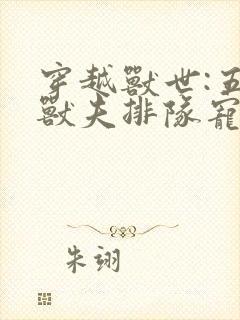 穿越獸世:五
獸夫排隊寵
朱翊